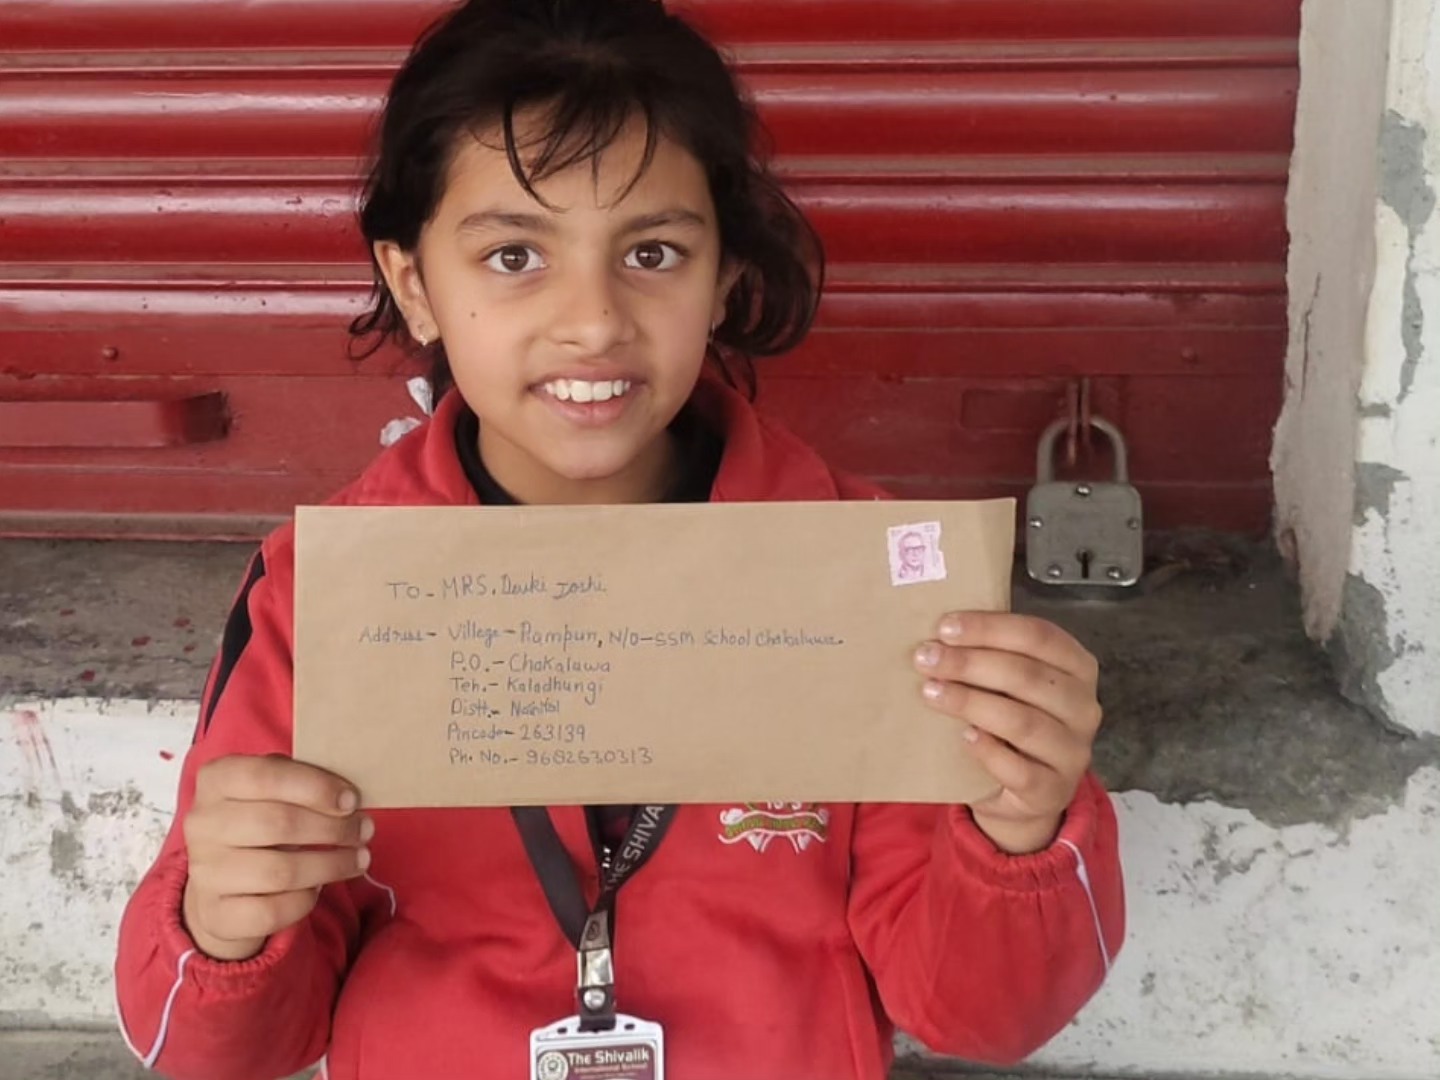 TO - MRS. Devki Joshi
Address - Village - Rampur, N/O - SSM School Chakaluwa.
P.O. - Chakaluwa
Teh. - Kaladhungi
Distt. - Nainital
Pincode - 263139
Ph. No. - 9682630313
THE SHIVA
The Shivalik
International School